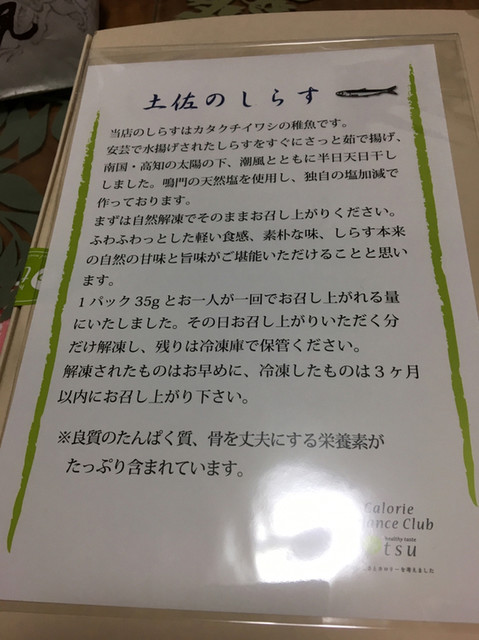 土佐のしらす
当店のしらすはカタクチイワシの稚魚です。
安芸で水揚げされたしらすをすぐにさっと茹で揚げ、
南国・高知の太陽の下、潮風とともに半日天日干し
しました。鳴門の天然塩を使用し、独自の塩加減で
作っております。
まずは自然解凍でそのままお召し上がりください。
ふわふわっとした軽い食感、素朴な味、しらす本来
の自然の甘味と旨味がご堪能いただけることと思い
ます。
1パック35gとお一人が一回でお召し上がれる量
にいたしました。その日お召し上がりいただく分
だけ解凍し、残りは冷凍庫で保管ください。
解凍されたものはお早めに、冷凍したものは3ヶ月
以内にお召し上がり下さい。
※良質のたんぱく質、骨を丈夫にする栄養素が
たっぷり含まれています。
Calorie
Club
healthy-taste
tsu